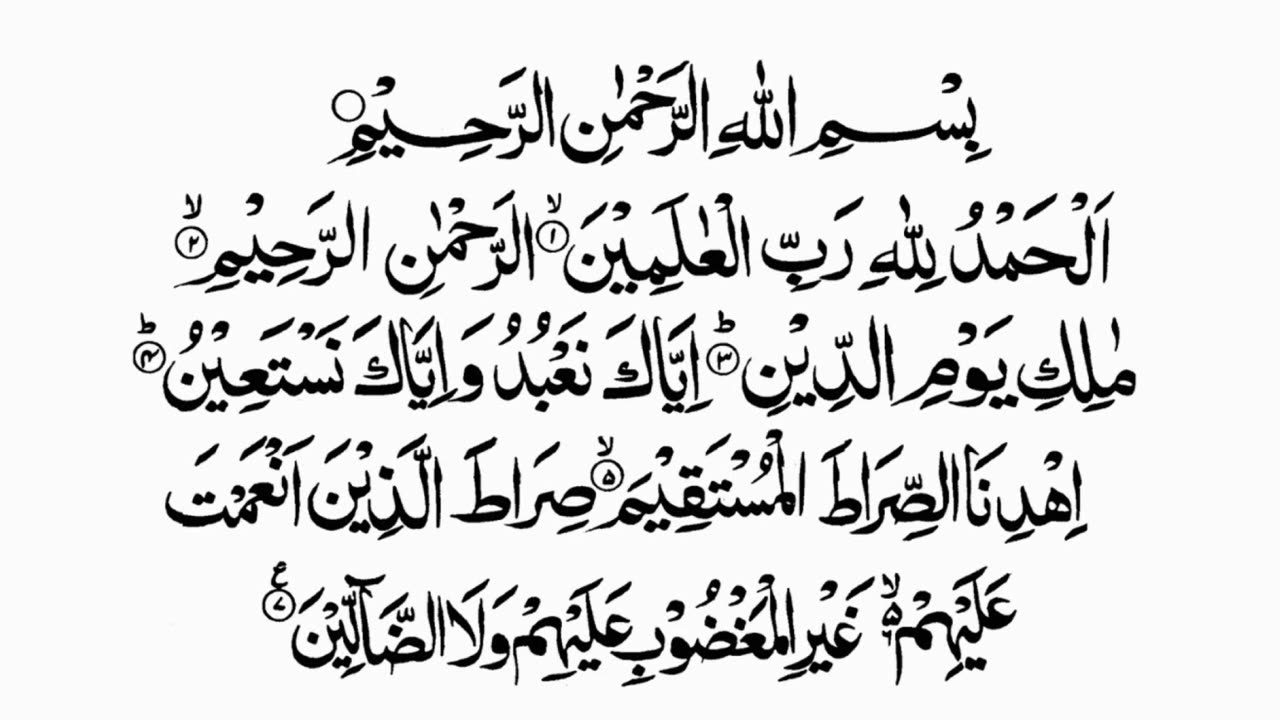 بِسْــمِ اللهِ الرَّحْمٰنِ الرَّحِـيْمِ ○
اَلْحَمْدُ لِلّٰهِ رَبِّ الْعٰلَمِيْنَ ۙ﴿۱﴾ الرَّحْمٰنِ الرَّحِيْمِ ۙ﴿۲﴾
مٰلِكِ يَوْمِ الدِّيْنِ ؕ﴿۳﴾ اِيَّاكَ نَعْبُدُ وَاِيَّاكَ نَسْتَعِيْنُ ؕ﴿۴﴾
اِهْدِنَا الصِّرَاطَ الْمُسْتَقِيْمَ ۙ﴿۵﴾ صِرَاطَ الَّذِيْنَ اَنْعَمْتَ
عَلَيْهِمْ ۙ۵ غَيْرِ الْمَغْضُوْبِ عَلَيْهِمْ وَلَا الضَّآلِّيْنَ ﴿۷﴾ ع